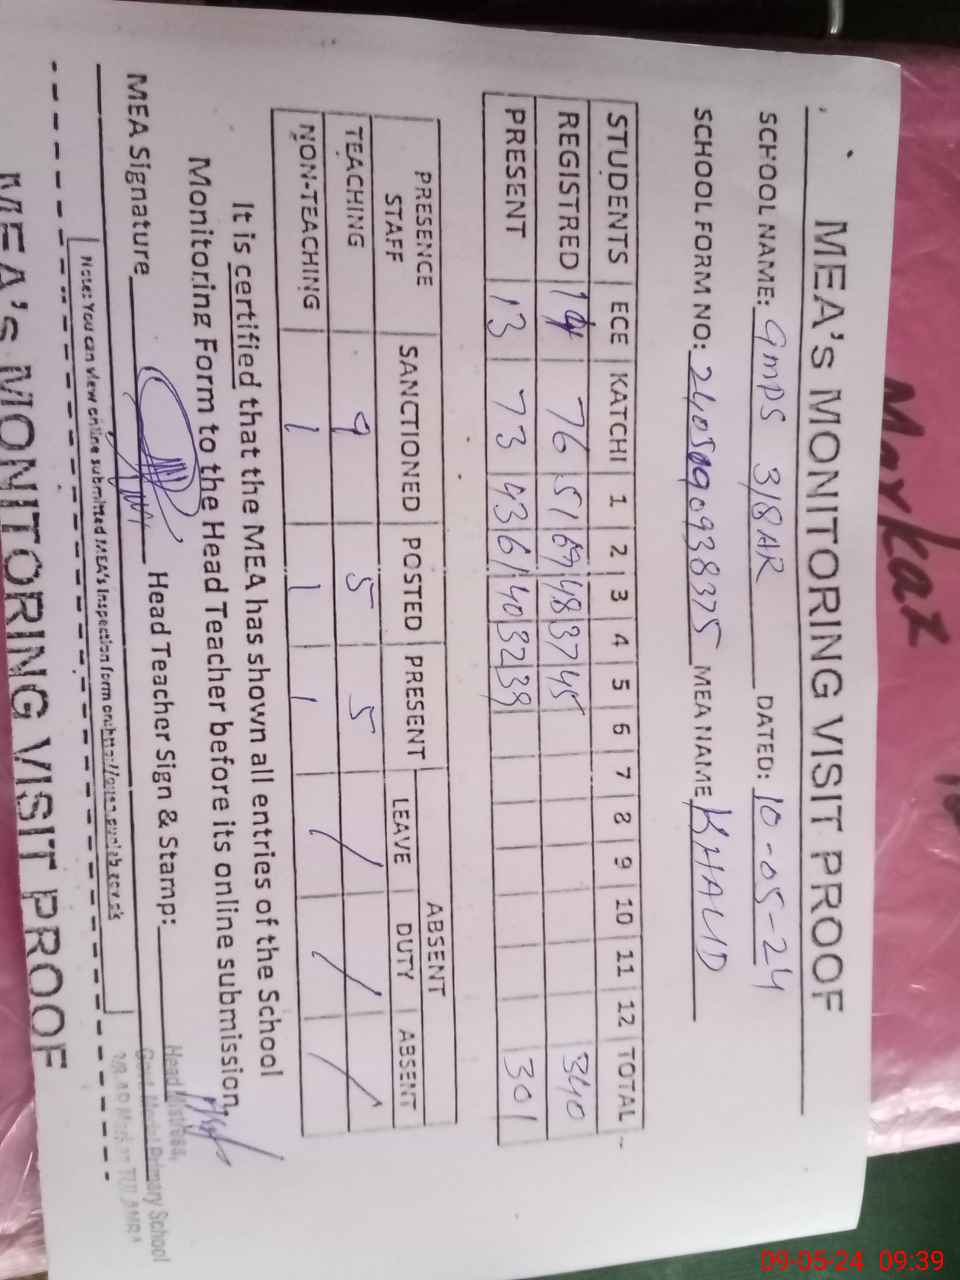 Markaz
MEA'S MONITORING VISIT PROOF
SCHOOL NAME: GMPS 3/8AR DATED: 10-05-24
SCHOOL FORM NO: MEA NAME KHALID
STUDENTS ECE KATCHI 1 2 3 4 5 6 7 8 9 10 11 12 TOTAL
REGISTRED 14 76 51 69 48 37 45 340
PRESENT 13 73 43 61 40 32 39 301
PRESENCE STAFF SANCTIONED POSTED PRESENT ABSENT
LEAVE DUTY ABSENT
TEACHING 9 5 5 /
NON-TEACHING 1 1 1 / / /
It is certified that the MEA has shown all entries of the School
Monitoring Form to the Head Teacher before its online submission.
MEA Signature Head Teacher Sign & Stamp:
Head Mistress,
Govt. Model Primary School
Note: You can view online submitted MEA's Inspection form on
MEA's MONITORING VISIT PROOF
09-05-24 09:39